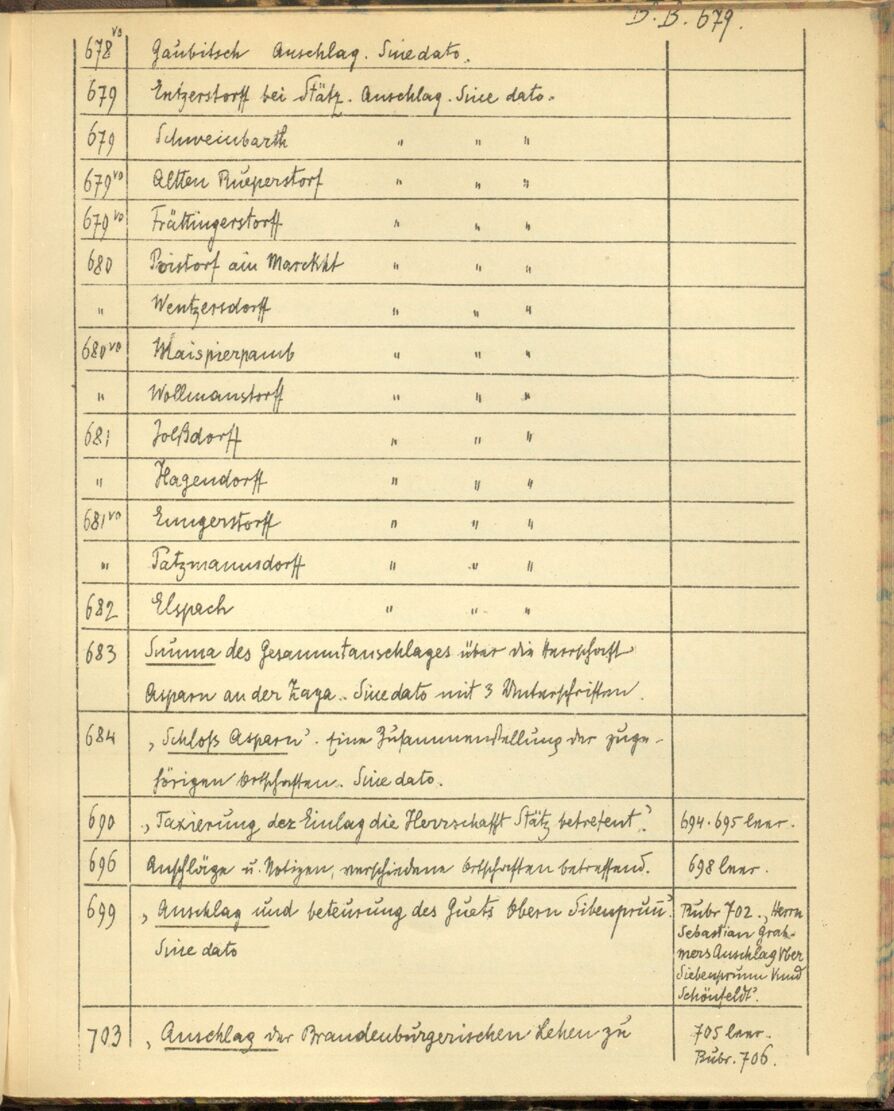 B. B. 679.
678 vo Gaubitsch Anschlag. Sine dato.
679 Entzerstorff bei Stätz. Anschlag. Sine dato.
679 Schweinbarth " " "
679 vo Altten Rueperstorf " " "
679 vo Frättingerstorff " " "
680 Poistorf am Marckht " " "
" Wentzersdorff " " "
680 vo Maispierpamb " " "
" Wollmanstorff " " "
681 Jolßdorff " " "
" Hagendorff " " "
681 vo Enngerstorff " " "
" Patzmannsdorff " " "
682 Elspach " " "
683 Summa des Gesammtanschlages über die Herrschaft
Asparn an der Zaya.. Sine dato mit 3 Unterschriften.
684 „Schloß Asparn". Eine Zusammenstellung der zuge-
hörigen Ortschaften. Sine dato.
690 „Taxierung der Einlag die Herrschafft Stätz betrefent". 694. 695 leer.
696 Anschläge u. Notizen, verschiedene Ortschaften betreffend. 698 leer.
699 „Anschlag und beteurung des Guets Obern Sibenprun". Rubr 702. „Herrn
Sine dato Sebastian Grah-
mers Anschlag Vber
Siebenprunn Vnnd
Schönfeldt".
703 „Anschlag der Brandenburgerischen Lehen zu 705 leer.
Rubr. 706.